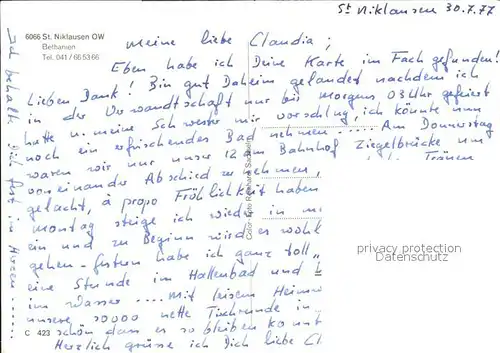 St. Niklausen 30.7.77
6066 St. Niklausen OW
Bethanien
Tel. 041 / 66 53 66
Meine liebe Claudia;
Eben habe ich Deine Karte im Fach gefunden!
Lieben Dank! Bin gut Daheim gelandet nachdem ich
in der Verwandtschaft nur bis morgens 03 Uhr gefeiert
hatte u. meine Schwester mir vorschlug, ich könnte nun
noch ein erfrischendes Bad nehmen ..... Am Donnerstag
waren wir nur unser 12 am Bahnhof Ziegelbrücke um
voneinander Abschied zu nehmen, Tränen
gelacht, à propo Fröhlichkeit haben
Montag steige ich wieder in
ein und zu Beginn wird es wohl
gehen. Gestern habe ich ganz toll
eine Stunde im Hallenbad und
im Wasser .... mit leisem
unsere nette Tischrunde in
schön dass es so bleiben könnt
Herzlich grüsse ich Dich liebe Cl
Ich behalte Dich fest im Herzen ......
C 423
privacy protection
Datenschutz